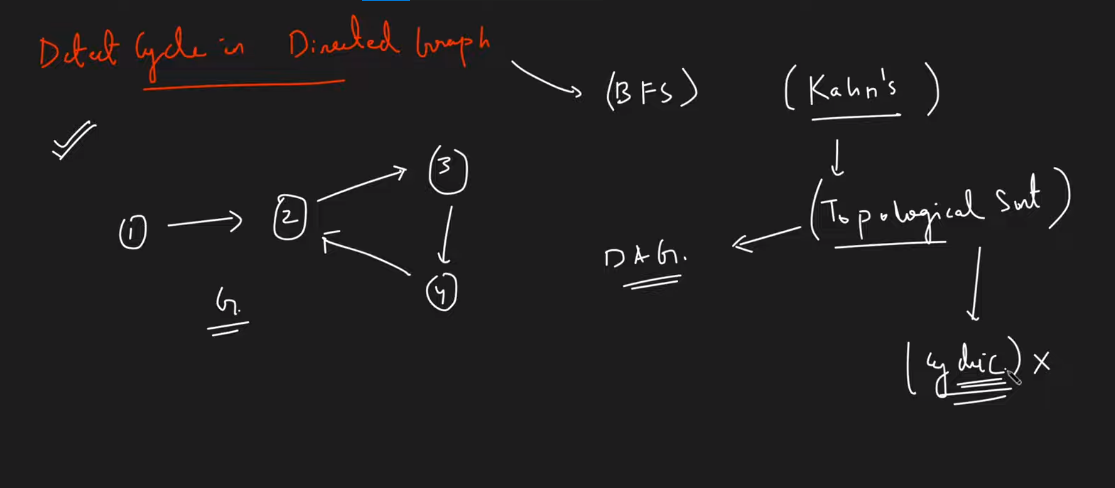 Detect Cycle in Directed Graph
(BFS) (Kahn's)
(Topological Sort)
DAG.
(cyclic) x
1
2
3
4
G.